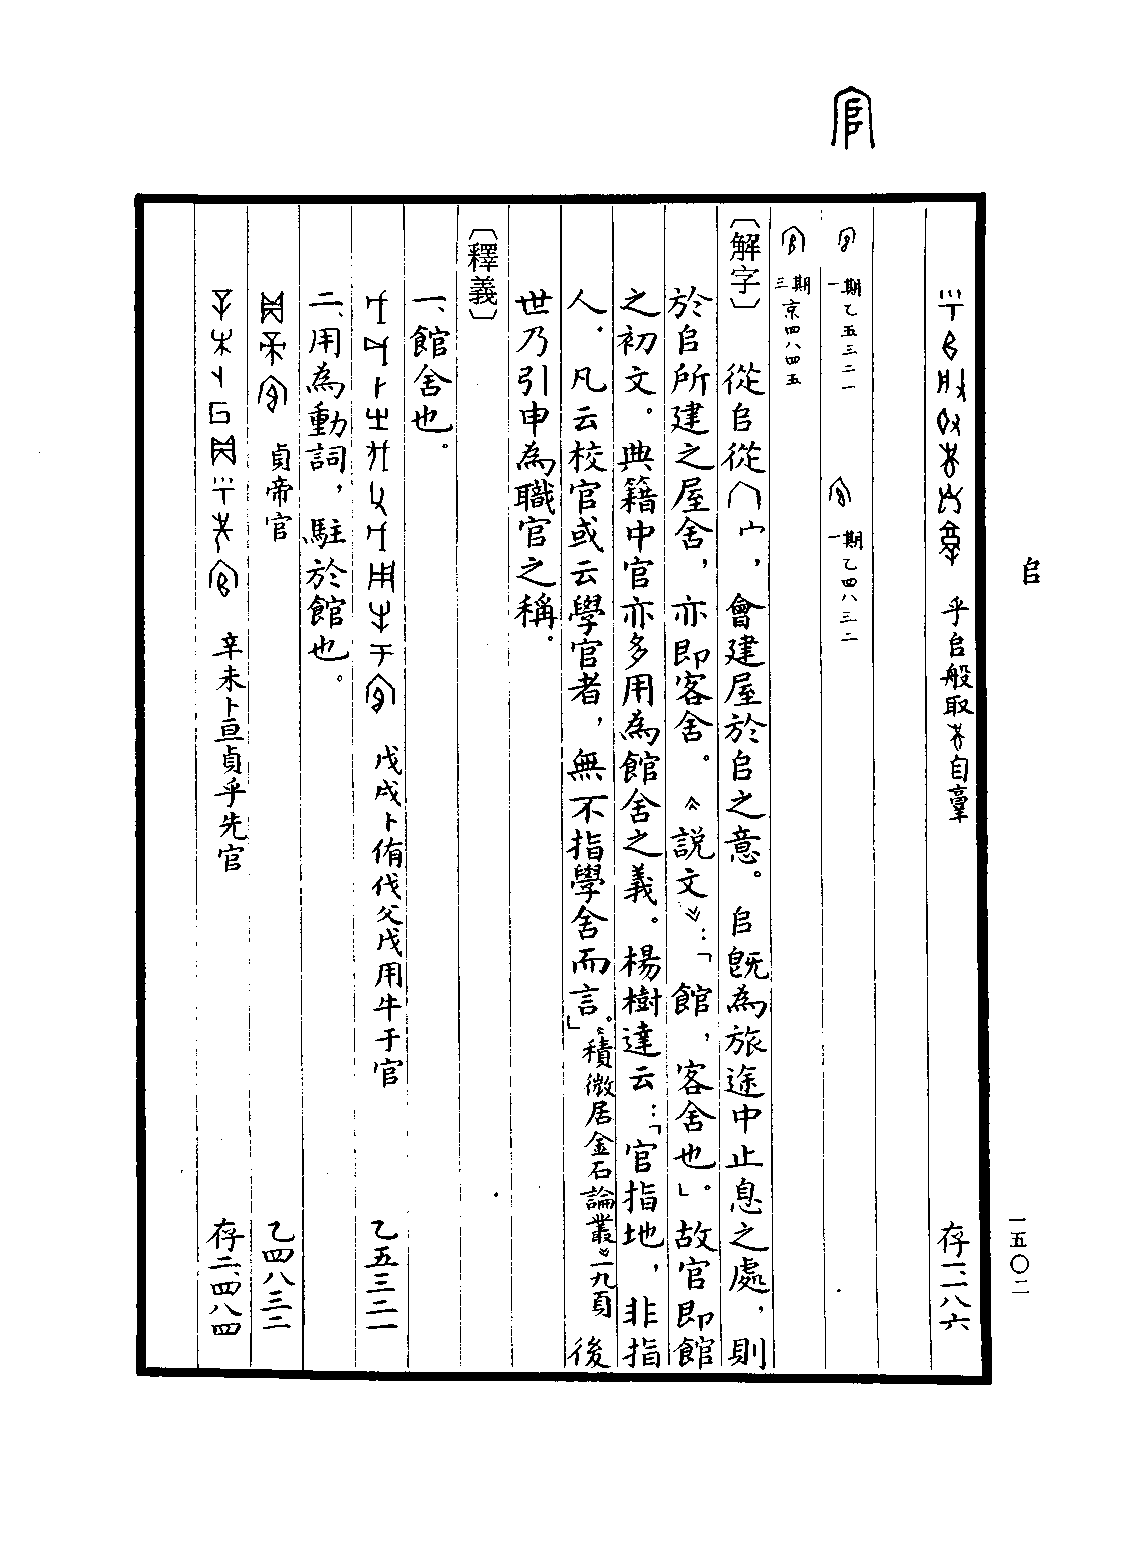 官
𠂤
一五〇二
乎𠂤般取 自𦎫 存一·二八六
一期 乙五三二一 一期 乙四八三二
三期 京四八四五
〔解字〕 從𠂤從 宀，會建屋於𠂤之意。𠂤旣為旅途中止息之處，則
於𠂤所建之屋舍，亦即客舍。《說文》：「館，客舍也」。故官即館
之初文。典籍中官亦多用為館舍之義。楊樹達云：「官指地，非指
人，凡云校官或云學官者，無不指學舍而言。」《積微居金石論叢》一九頁 後
世乃引申為職官之稱。
〔釋義〕
一、館舍也。
戊戌卜侑伐父戊用牛于官 乙五三二一
二、用為動詞，駐於館也。
貞帝官 乙四八三二
辛未卜亘貞乎先官 存二·四八四